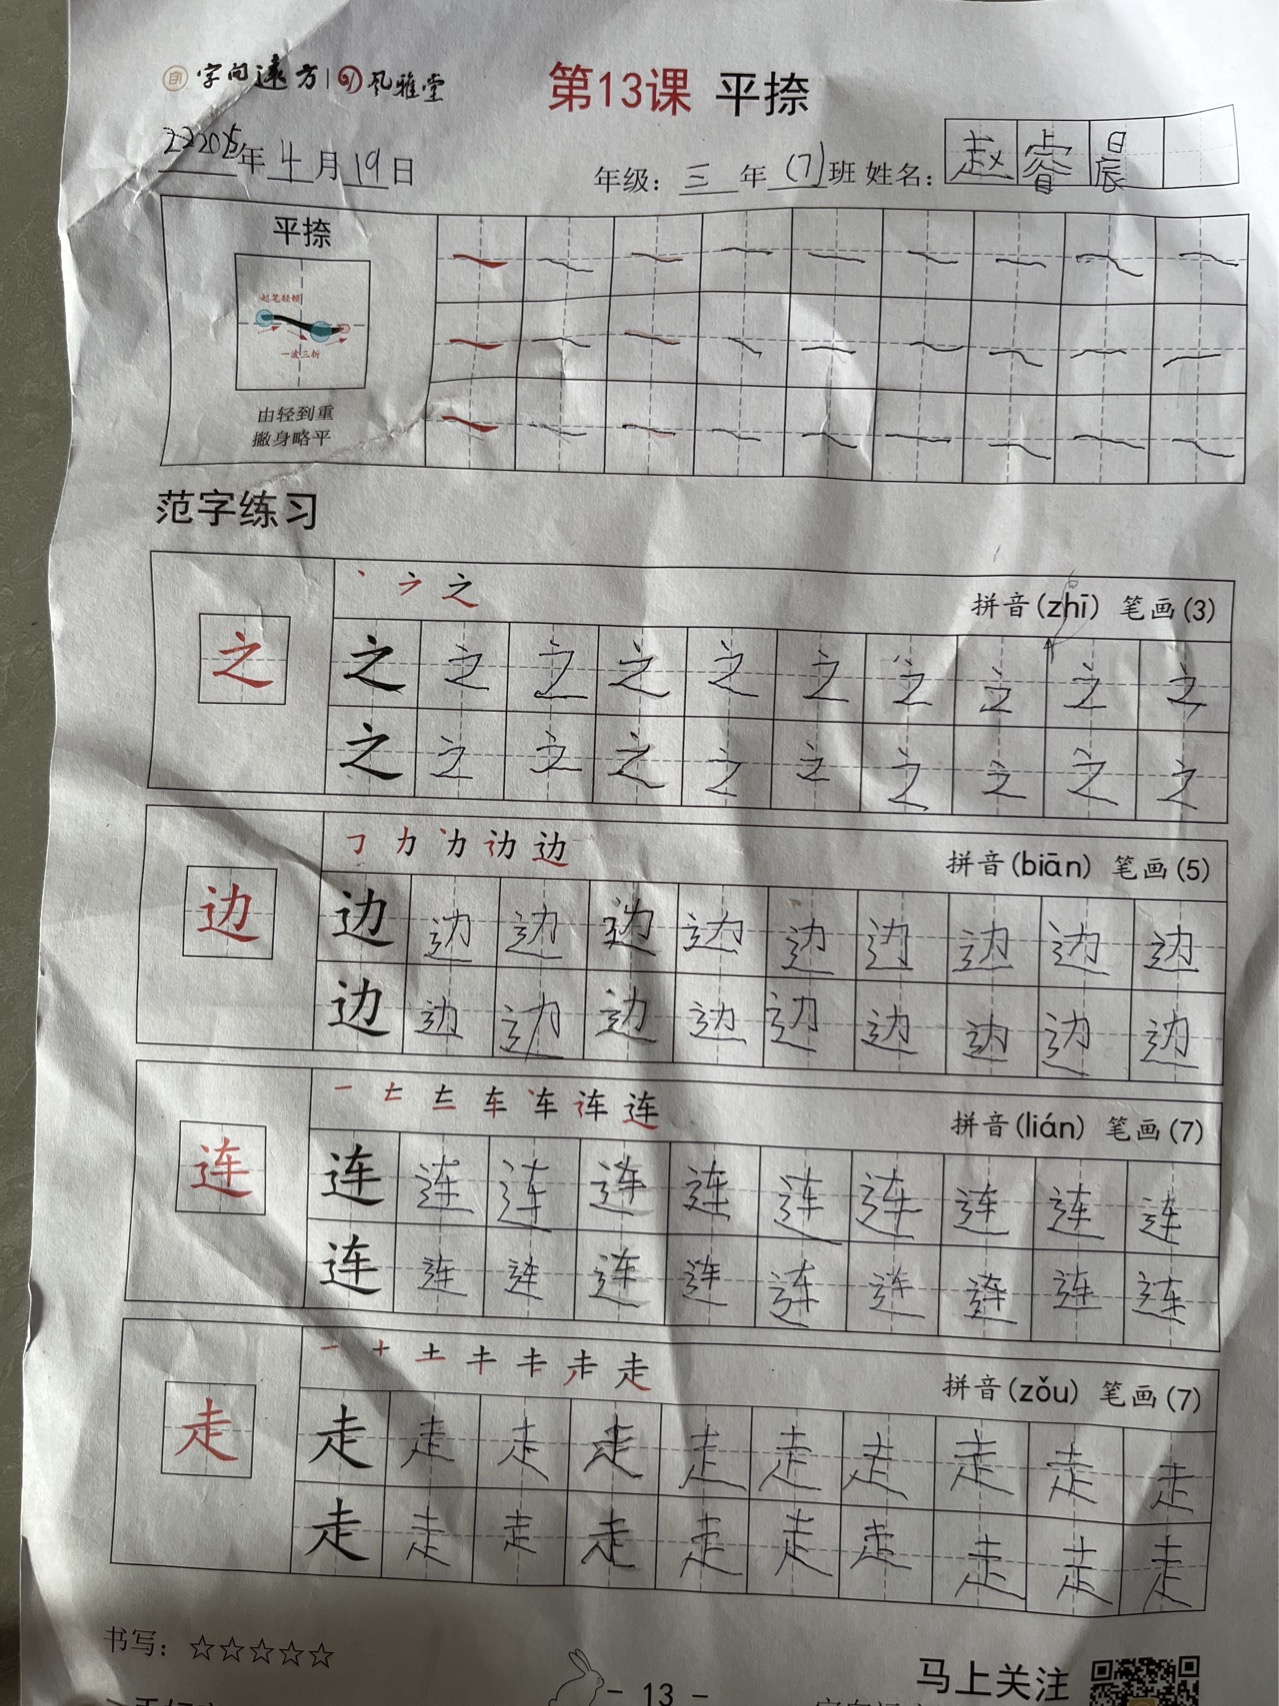 字间远方 | 风雅堂
第13课 平捺
222025年4月19日 年级：三年(7)班 姓名：赵睿晨
平捺
起笔轻顿
一波三折
由轻到重
撇身略平
范字练习
丶 ㇇ 之 拼音(zhī) 笔画(3)
之 之 之 之 之 之 之 之 之 之 之
之 之 之 之 之 之 之 之 之 之
边 拼音(biān) 笔画(5)
边 边 边 边 边 边 边 边 边 边 边
边 边 边 边 边 边 边 边 边 边
一 车 连 拼音(lián) 笔画(7)
连 连 连 连 连 连 连 连 连 连 连
连 连 连 连 连 连 连 连 连 连
一 十 土 走 拼音(zǒu) 笔画(7)
走 走 走 走 走 走 走 走 走 走 走
走 走 走 走 走 走 走 走 走 走
书写：☆☆☆☆☆
- 13 -
马上关注